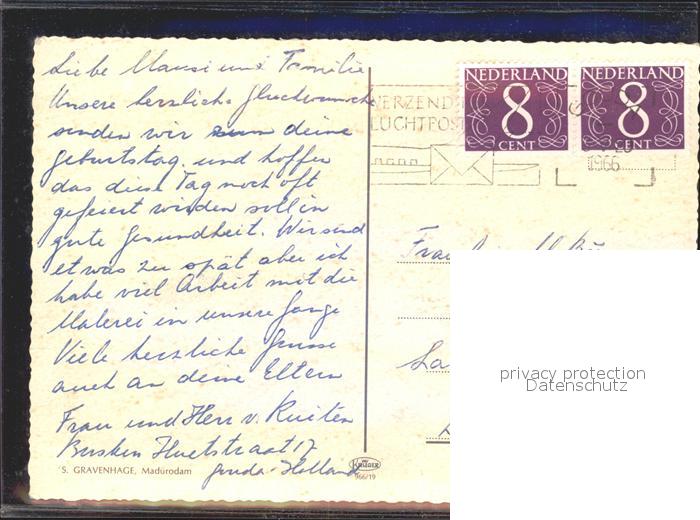 Liebe Mausi und Familie
Unsere herzliche Glückwunsche
senden wir zum deine
geburtstag. und hoffen
das diese Tag noch oft
gefeiert wirden soll in
gute Gesundheit. Wir sind
etwas zu spät aber ich
habe viel Arbeit mit die
Malerei in unsere Gange
Viele herzliche Grusse
auch an deine Eltern
Frau und Herr v. Kuiten
Busken Huetstraat 17
Gouda - Holland
'S. GRAVENHAGE, Madurodam
KRÜGER
966/19
VERZEND
LUCHTPOST
1966
NEDERLAND
8
CENT
NEDERLAND
8
CENT
Frau
La
privacy protection
Datenschutz